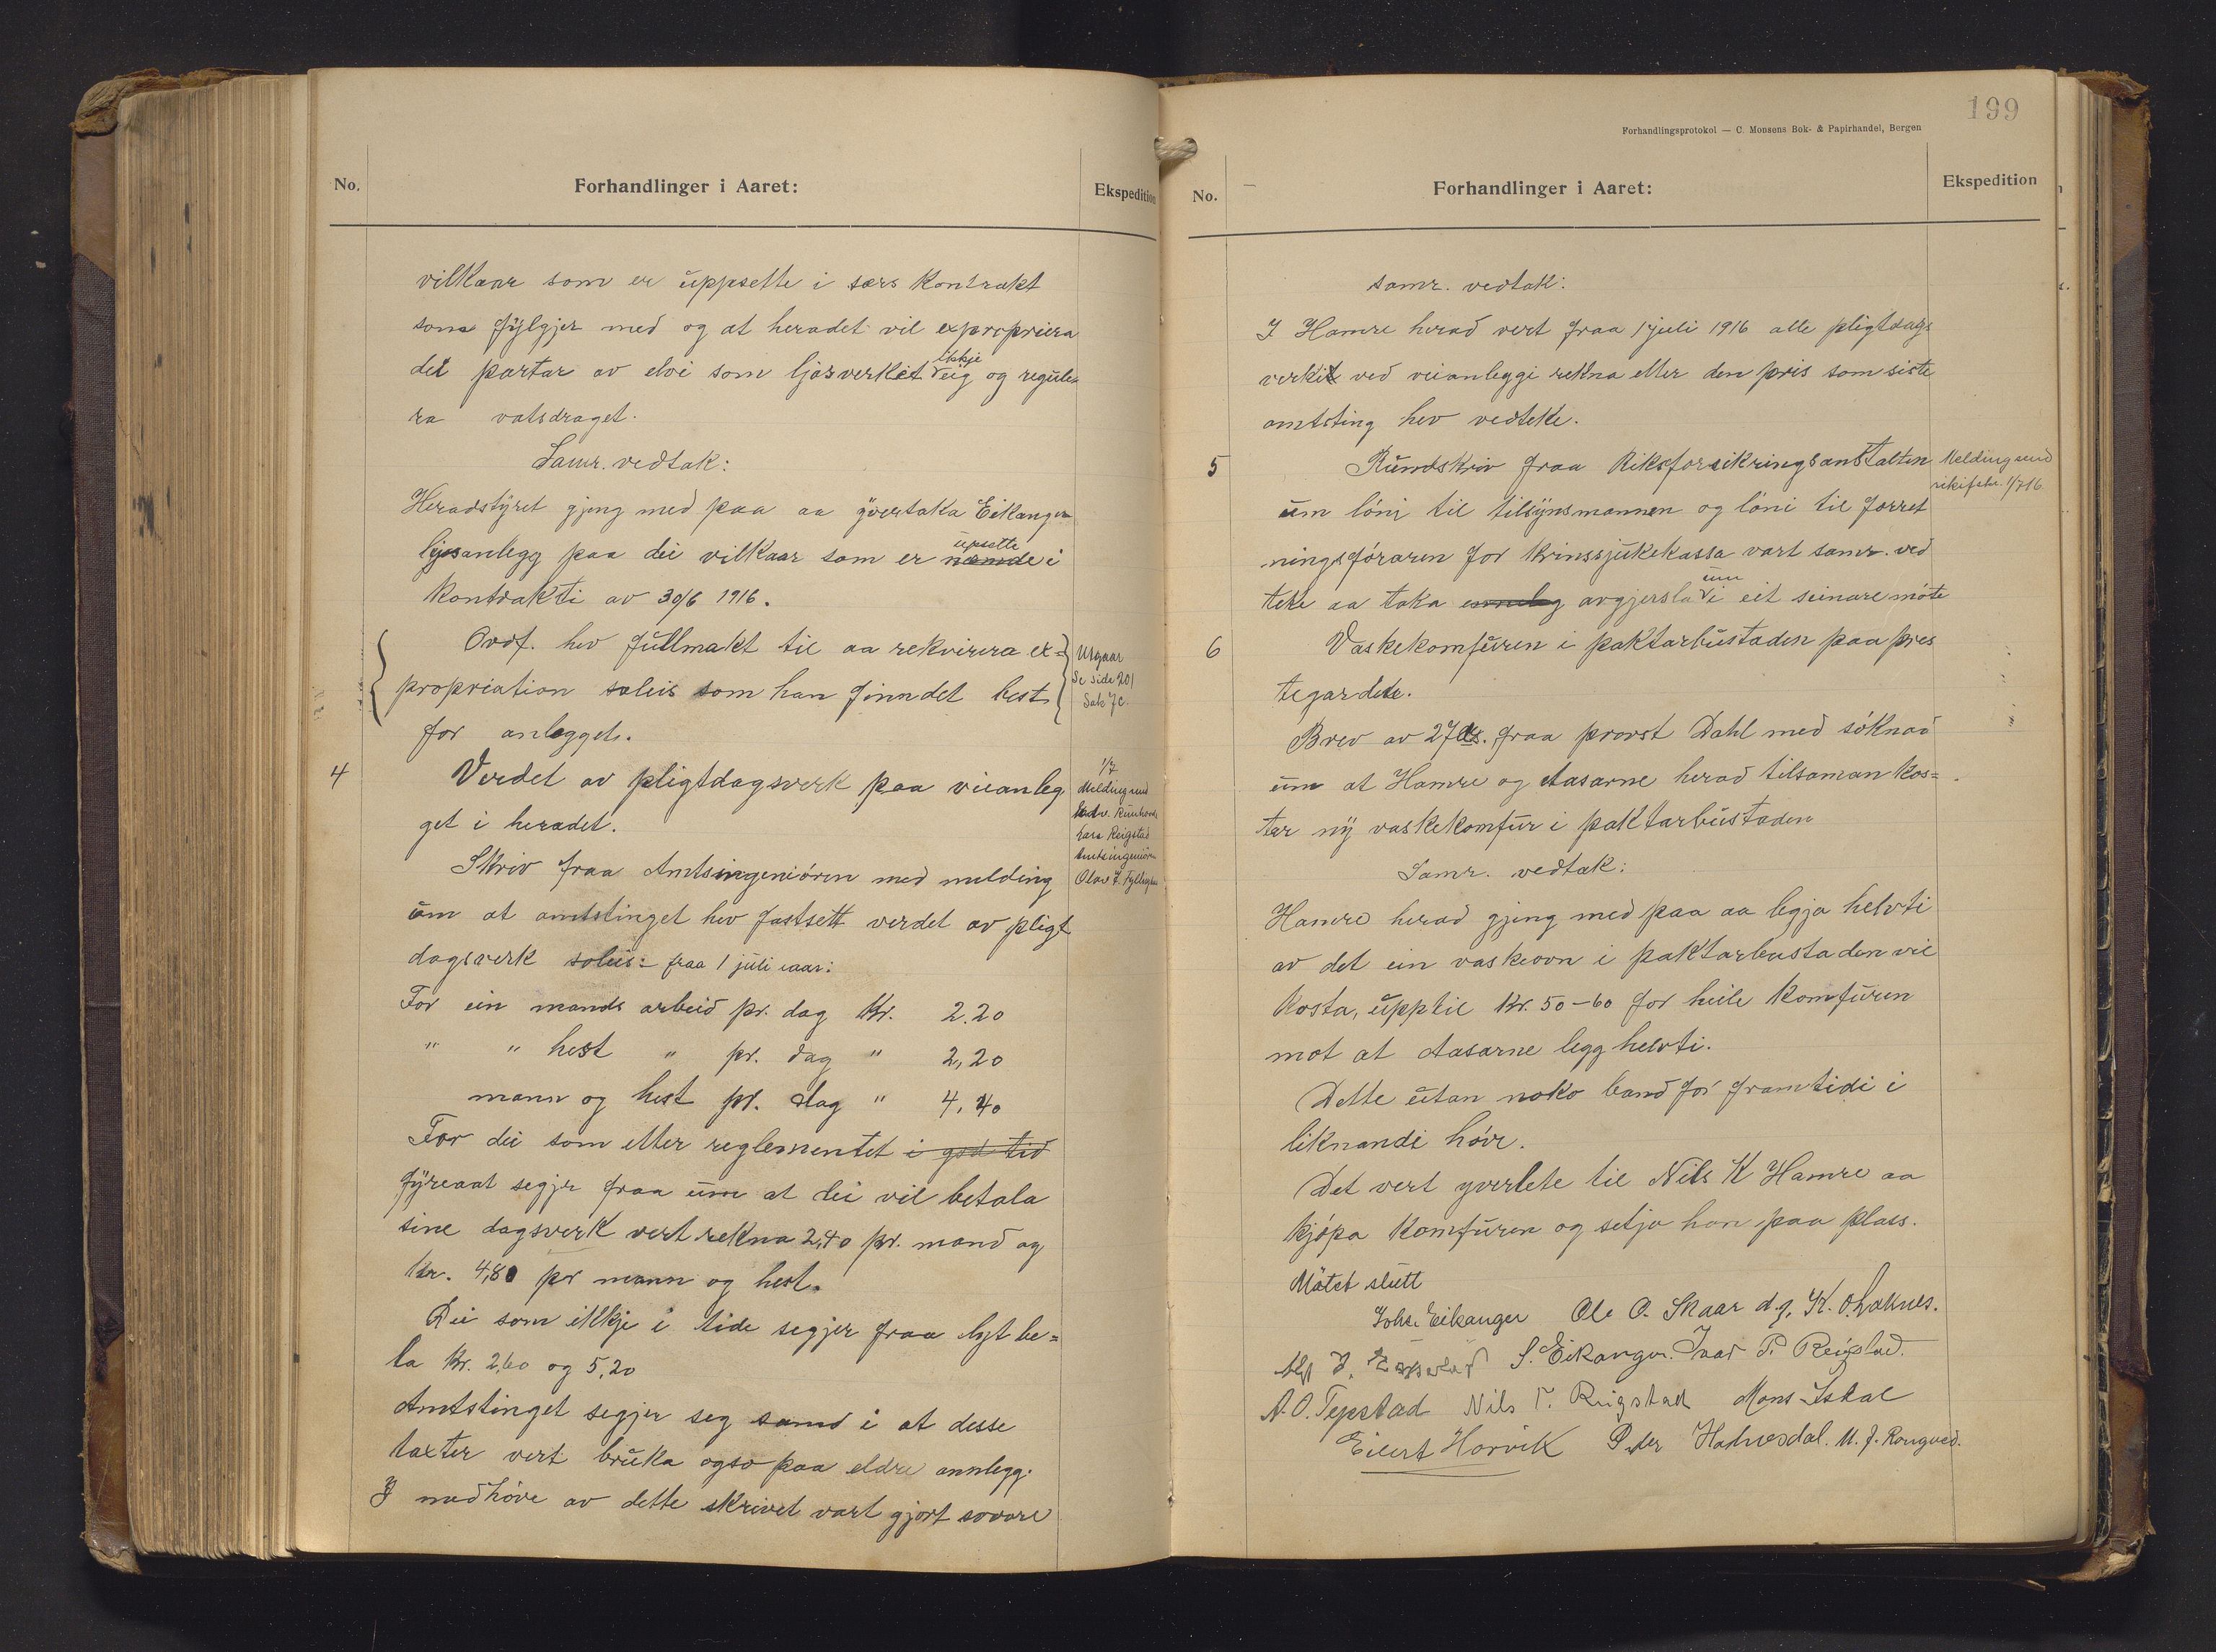 No.
Forhandlinger i Aaret:
Ekspedition
vilkaar som er uppsette i særs kontrakt
som fylgjer med og at heradet vil expropriera
dei partar av elvi som ljosverket ikkje eig og regule-
ra vatsdraget.
Samr. vedtak:
Heradstyret gjeng med paa aa yvertaka Eikanger
ljosanlegg paa dei vilkaar som er nemde upsette i
kontrakti av 30/6 1916.
Ordf. hev fullmakt til aa rekvirera ex-
propriation soleis som han finn det best
for anlegget.
Utgaar
Se side 201
Sak 7c
4
Verdet av pligtdagsverk paa veianleg
get i heradet.
1/7
Melding send
Lars Reigstad
Amtsingeniøren
Skriv fraa Amtsingeniøren med melding
um at amtstinget hev fastsett verdet av pligt
dagsverk soleis: fraa 1 juli iaar:
For ein mands arbeid pr. dag Kr. 2.20
" " hest " pr. dag " 2,20
mann og hest pr. dag " 4,40
For dei som etter reglementet i god tid
fyreaat segjer fraa um at dei vil betala
sine dagsverk vert rekna 2,40 pr. mand og
Kr. 4,80 pr mann og hest.
Dei som ikkje i tide segjer fraa lyt be=
ta Kr. 2,60 og 5,20
Amtstinget segjer seg samd i at desse
taxter vert bruka ogso paa eldre annlegg.
I medhøve av dette skrivet vart gjort sovore
199
Forhandlingsprotokol — C. Monsens Bok- & Papirhandel, Bergen
No.
Forhandlinger i Aaret:
Ekspedition
samr. vedtak:
I Hamre herad vert fraa 1 juli 1916 alle pligtdags
verki ved veianleggi rekna etter den pris som siste
amtsting hev vedteke.
5
Rundskriv fraa Riksforsikringsanstalten
um løni til tilsynsmannen og løni til forret
ningsføraren for krinssjukekassa vart samr. ved
teke aa taka avgjersla um i eit seinare møte
Melding send
rikifors. 1/7 16
6
Vaskekomfuren i paktarbustaden paa pres
tegardete.
Brev av 27 ds. fraa provst Dahl med søknad
um at Hamre og Aasarne herad tilsaman kos=
tar ny vaskekomfur i paktarbustaden
Samr. vedtak:
Hamre herad gjeng med paa aa legja helvti
av det ein vaskeovn i paktarbustaden vil
kosta, upptil Kr. 50-60 for heile komfuren
mot at Aasarne legg helvti.
Dette utan noko band for framtidi i
liknandi høve.
Det vert yverlete til Nils K Hamre aa
kjøpa komfuren og setja han paa plass.
Møtet slutt
Johs. Eikanger Ole O. Skaar d.y. K. O. Loknes.
S. Eikanger. Ivar P. Reigstad.
A. O. Tepstad Nils T. Reigstad Mons Isdal
Eilert Horvik Peder Halvesdal. M. J. Rongved.